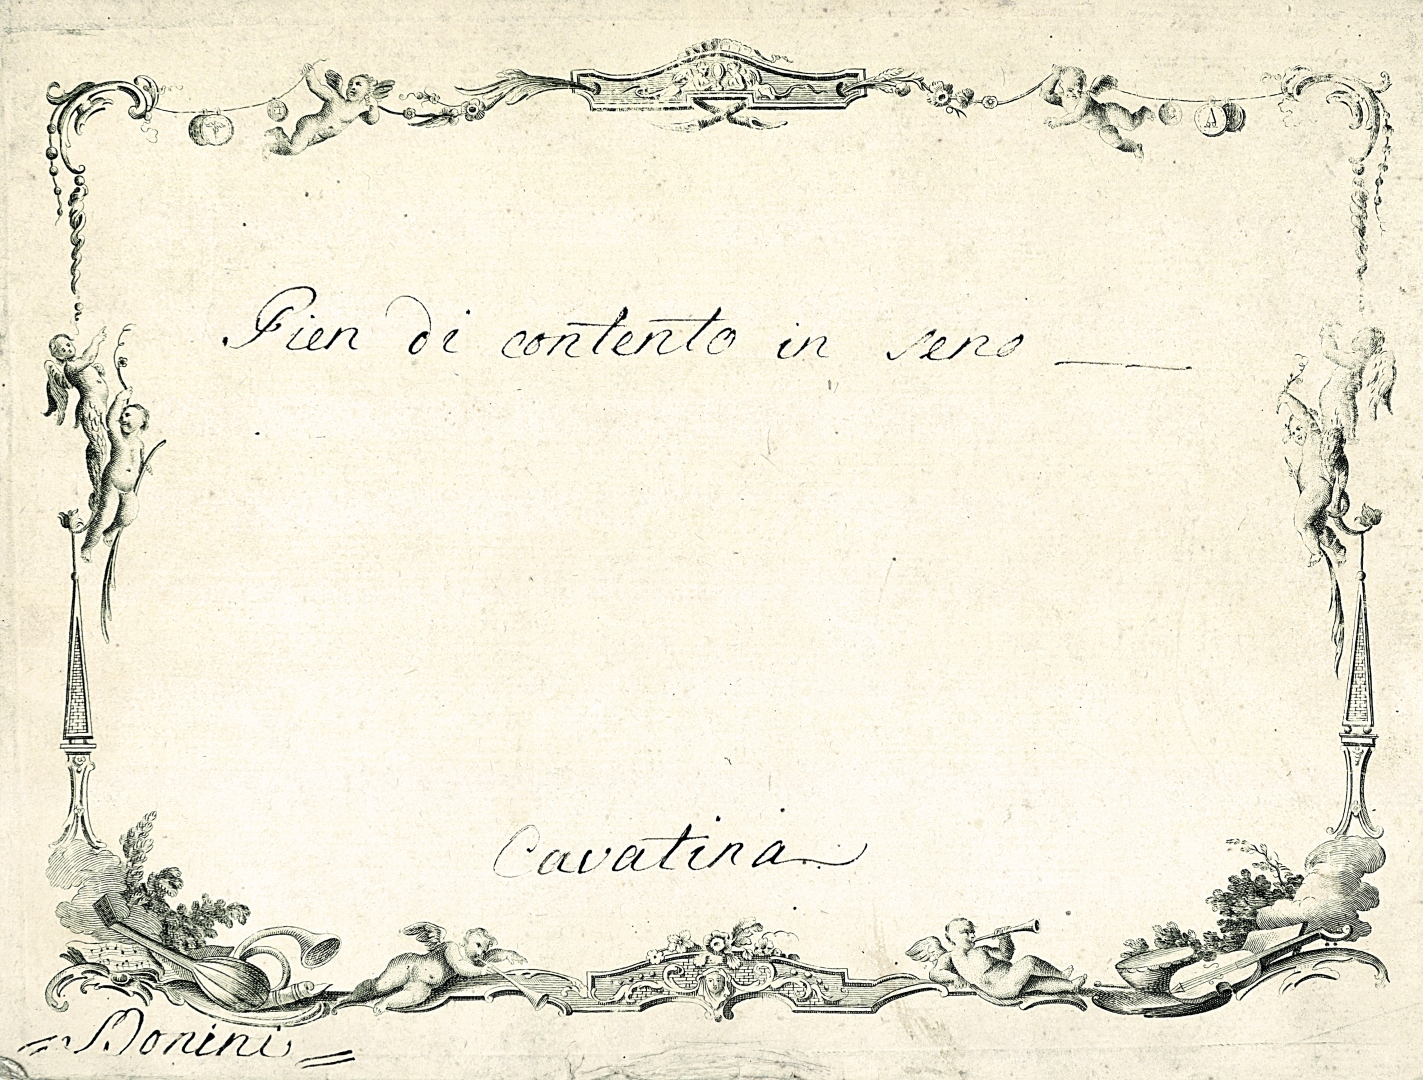 Pien di contento in seno
Cavatina
Monini